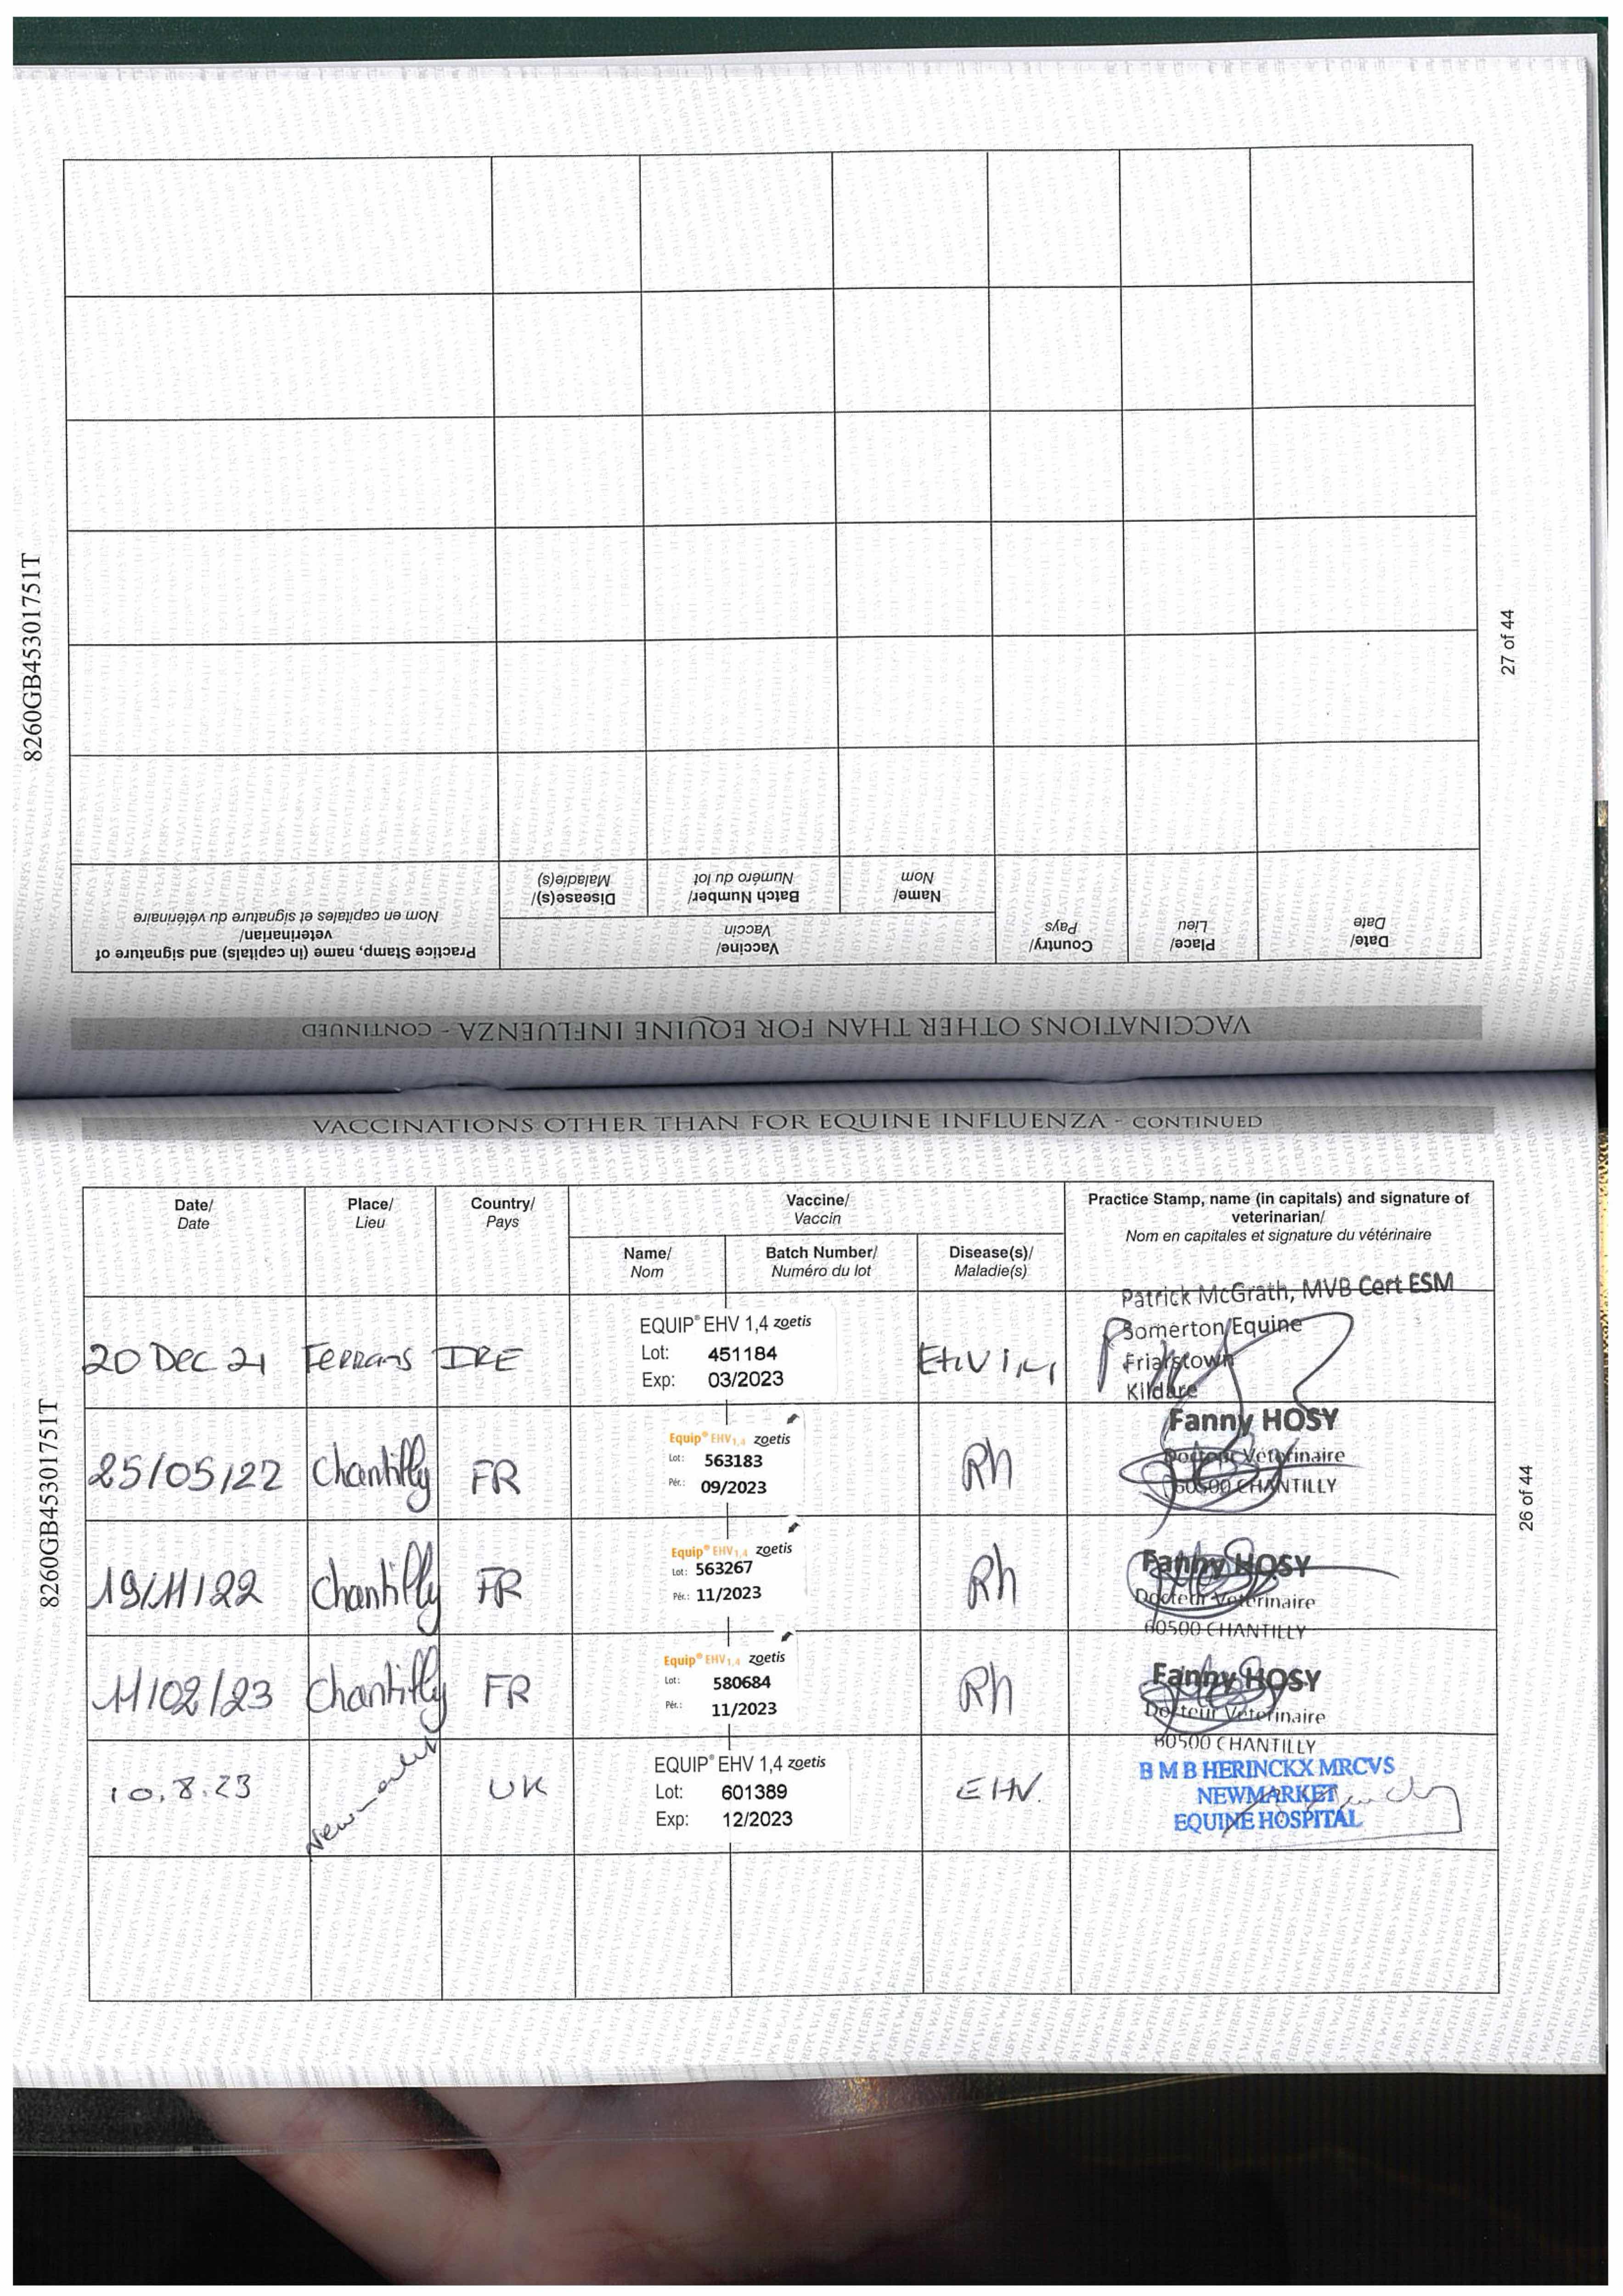 8260GB45301751T
27 of 44
VACCINATIONS OTHER THAN FOR EQUINE INFLUENZA - CONTINUED
Date/
Date
Place/
Lieu
Country/
Pays
Vaccine/
Vaccin
Name/
Nom
Batch Number/
Numéro du lot
Disease(s)/
Maladie(s)
Practice Stamp, name (in capitals) and signature of
veterinarian/
Nom en capitales et signature du vétérinaire
VACCINATIONS OTHER THAN FOR EQUINE INFLUENZA - CONTINUED
8260GB45301751T
26 of 44
Date/
Date
Place/
Lieu
Country/
Pays
Vaccine/
Vaccin
Name/
Nom
Batch Number/
Numéro du lot
Disease(s)/
Maladie(s)
Practice Stamp, name (in capitals) and signature of
veterinarian/
Nom en capitales et signature du vétérinaire
20 Dec 21
Ferrans
IRE
EQUIP® EHV 1,4 zoetis
Lot: 451184
Exp: 03/2023
EHV 1,4
Patrick McGrath, MVB Cert ESM
Somerton Equine
Friarstown
Kildare
25/05/22
Chantilly
FR
Equip® EHV1,4 zoetis
Lot: 563183
Pér.: 09/2023
Rh
Fanny HOSY
Docteur Vétérinaire
60500 CHANTILLY
19/11/22
Chantilly
FR
Equip® EHV1,4 zoetis
Lot: 563267
Pér.: 11/2023
Rh
Fanny HOSY
Docteur Vétérinaire
60500 CHANTILLY
11/02/23
Chantilly
FR
Equip® EHV1,4 zoetis
Lot: 580684
Pér.: 11/2023
Rh
Fanny HOSY
Docteur Vétérinaire
60500 CHANTILLY
10.8.23
Newmarket
UK
EQUIP® EHV 1,4 zoetis
Lot: 601389
Exp: 12/2023
EHV.
B M B HERINCKX MRCVS
NEWMARKET
EQUINE HOSPITAL